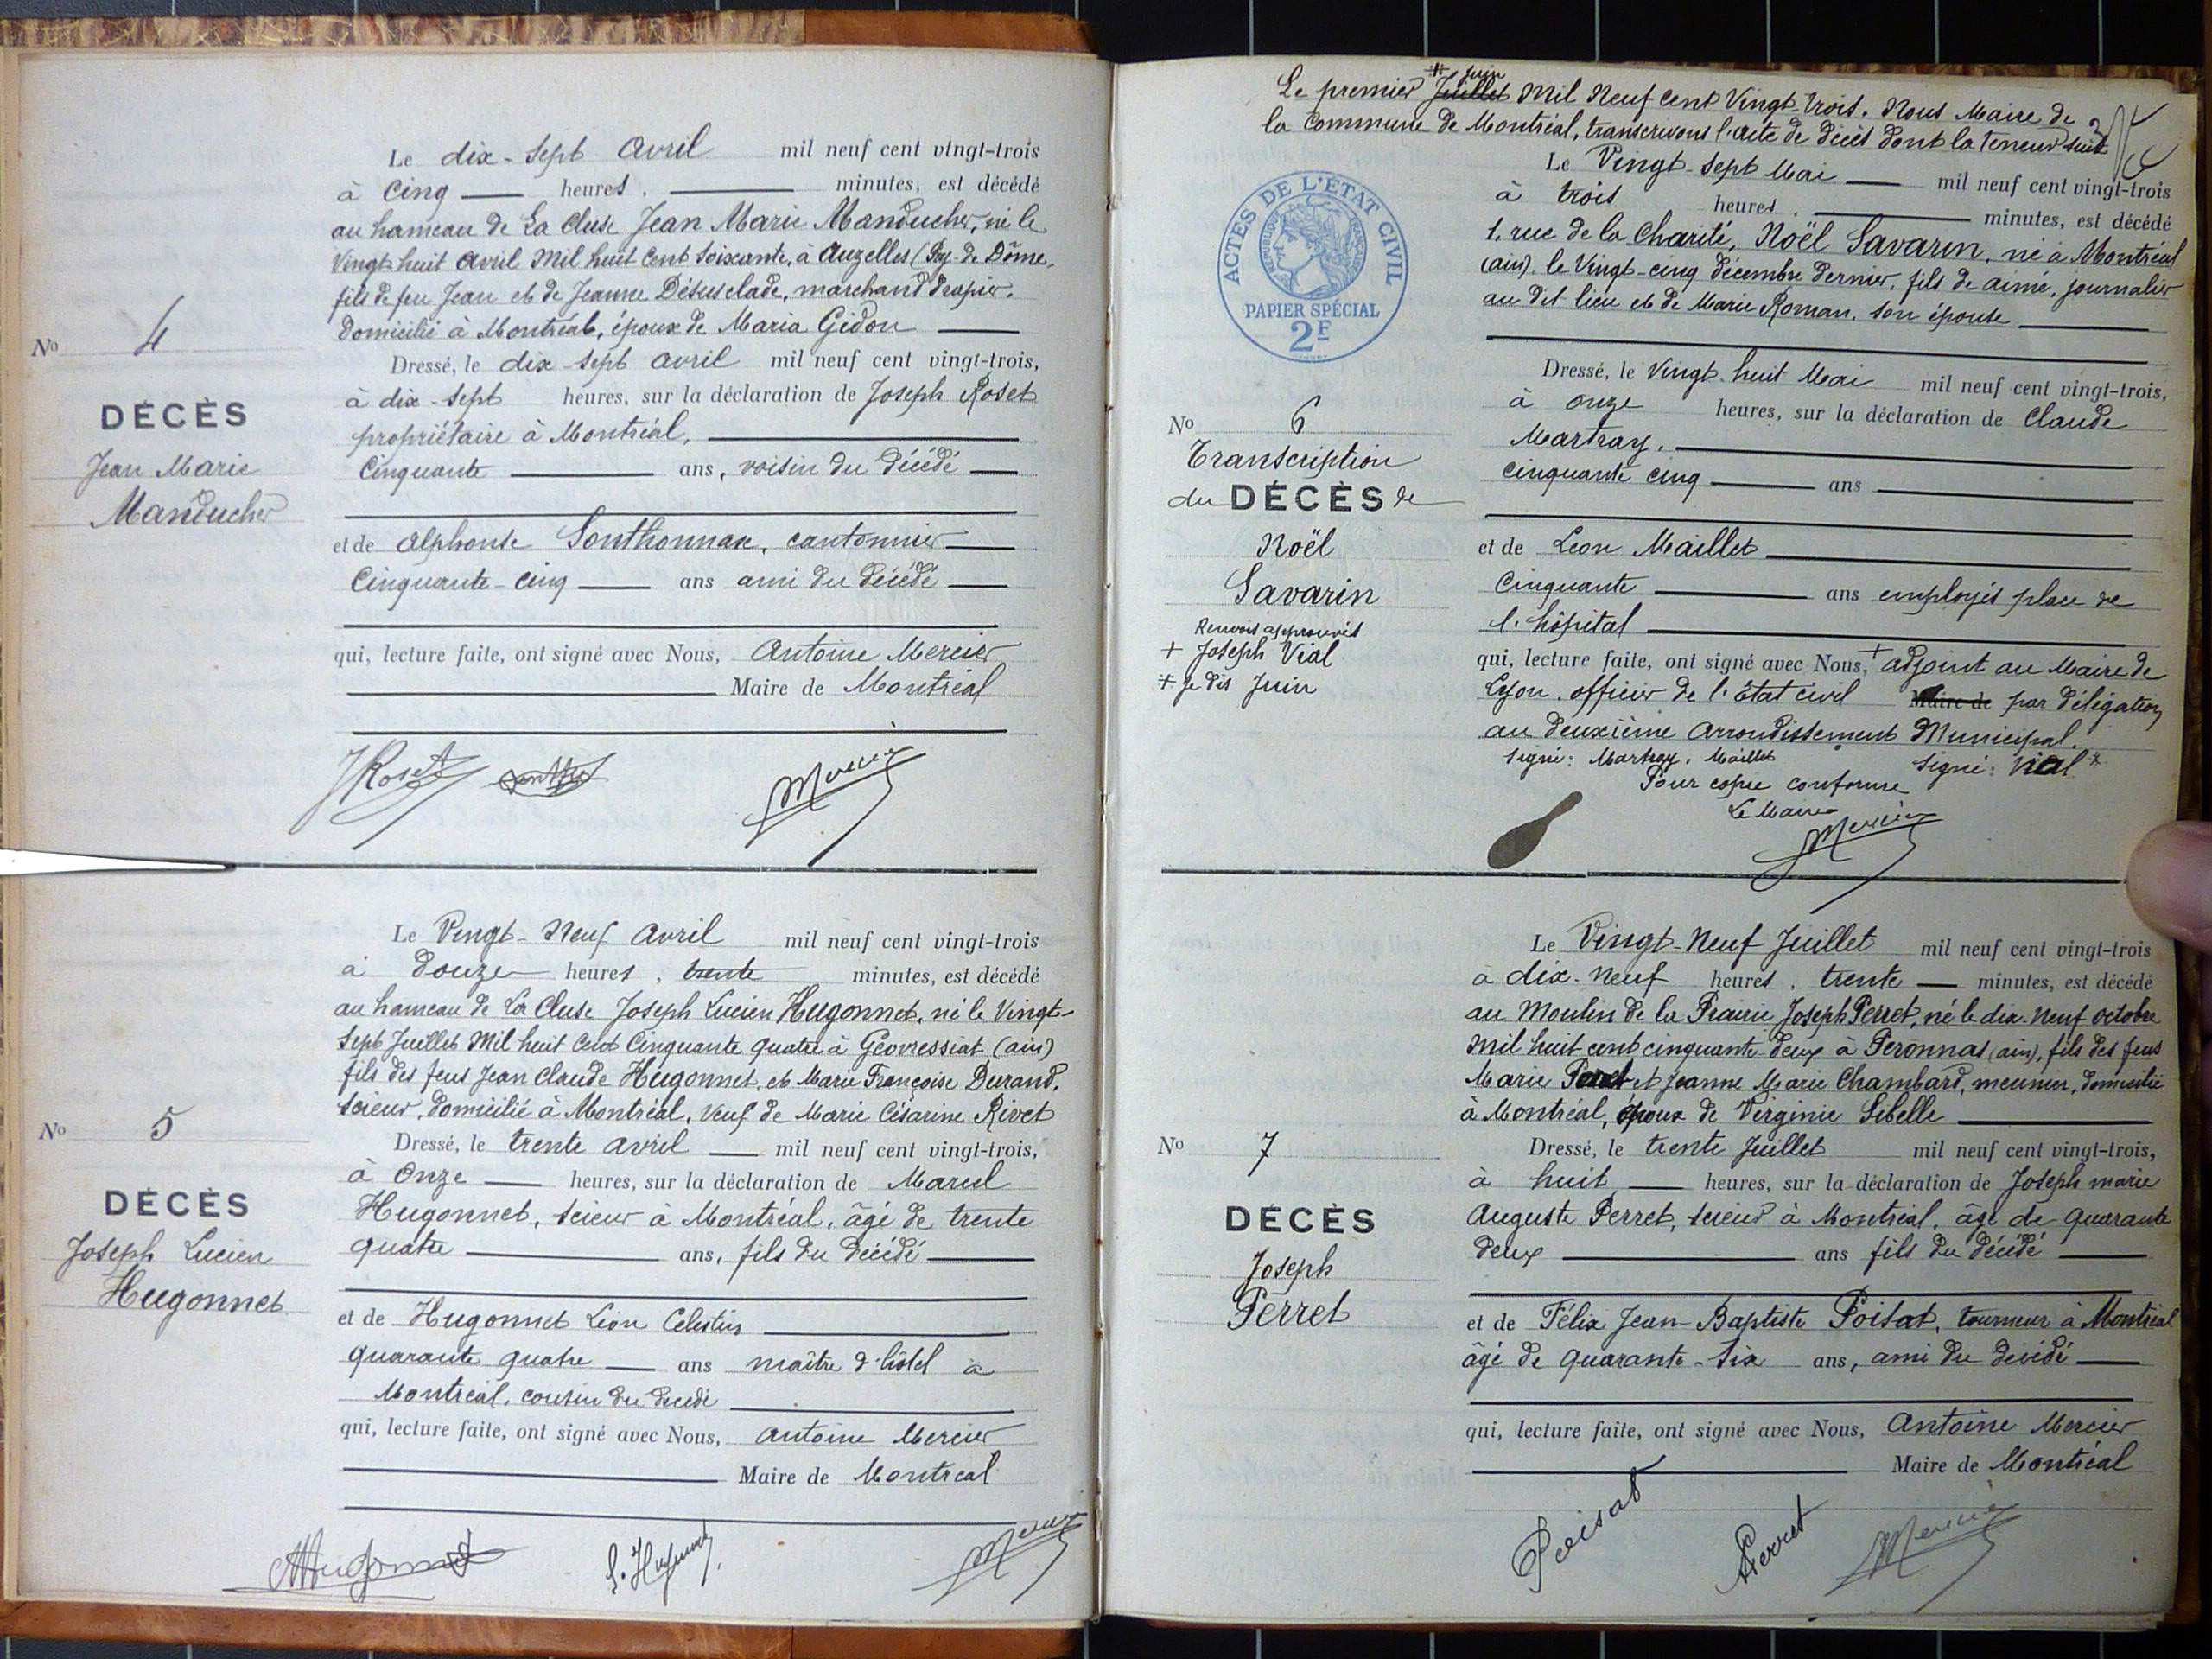 Le dix-sept Avril mil neuf cent vingt-trois
à Cinq heures, minutes, est décédé
au hameau de La Cluse Jean Marie Manducher, né le
Vingt huit Avril Mil huit Cent Soixante, à Auzelles (Puy-de-Dôme,
fils de feu Jean et de Jeanne Désusclade, marchand drapier,
domicilié à Montréal, époux de Maria Gidon
Dressé, le dix-sept Avril mil neuf cent vingt-trois,
à dix-sept heures, sur la déclaration de Joseph Roset
propriétaire à Montréal,
Cinquante ans, voisin du décédé
et de Alphonse Sonthonnax, cantonnier
Cinquante-cinq ans ami du décédé
qui, lecture faite, ont signé avec Nous, Antoine Mercier
Maire de Montréal
No 4
DÉCÈS
Jean Marie
Manducher
JRoset Mercier
Le Vingt-Neuf Avril mil neuf cent vingt-trois
à douze heures, trente minutes, est décédé
au hameau de La Cluse Joseph Lucien Hugonnet, né le Vingt-
Sept Juillet Mil huit Cent Cinquante quatre à Géovressiat (ain)
fils des feus Jean Claude Hugonnet, et Marie Françoise Durand,
scieur, domicilié à Montréal, Veuf de Marie Césarine Rivet
Dressé, le trente avril mil neuf cent vingt-trois,
à Onze heures, sur la déclaration de Marcel
Hugonnet, scieur à Montréal, âgé de trente
quatre ans, fils du décédé
et de Hugonnet Léon Celestin
quarante quatre ans maître d'hôtel à
Montréal, cousin du décédé
qui, lecture faite, ont signé avec Nous, Antoine Mercier
Maire de Montréal
No 5
DÉCÈS
Joseph Lucien
Hugonnet
Hugonnet Mercier
Le premier # Juillet Juin Mil Neuf Cent Vingt-trois. Nous Maire de
la Commune de Montréal, transcrivons l'acte de décès dont la teneur suit
Le Vingt-sept Mai mil neuf cent vingt-trois
à trois heures, minutes, est décédé
1, rue de la Charité, Noël Savarin, né à Montréal
(ain), le Vingt-cinq décembre dernier, fils de aimé, journalier
au dit lieu et de Marie Roman, son épouse
Dressé, le Vingt-huit Mai mil neuf cent vingt-trois,
à onze heures, sur la déclaration de Claude
Martray,
cinquante cinq ans
et de Leon Maillet
Cinquante ans employés place de
l'hôpital
qui, lecture faite, ont signé avec Nous, + adjoint au Maire de
Lyon, officier de l'État civil Maire de par délégation
au deuxième arrondissement Municipal.
signé: Martray, Maillet signé: Vial
Pour copie conforme
Le Maire
Mercier
ACTES DE L'ÉTAT CIVIL
RÉPUBLIQUE FRANÇAISE
PAPIER SPÉCIAL
2F
No 6
Transcription
du DÉCÈS de
Noël
Savarin
Renvois approuvés
+ Joseph Vial
# je dis Juin
Le Vingt-Neuf Juillet mil neuf cent vingt-trois
à dix-neuf heures, trente minutes, est décédé
au Moulin de la Prairie Joseph Perret, né le dix-neuf octobre
mil huit cent cinquante-deux à Péronnas (ain), fils des feus
Marie Perret et Jeanne Marie Chambard, meunier, domicilié
à Montréal, époux de Virginie Sibelle
Dressé, le trente Juillet mil neuf cent vingt-trois,
à huit heures, sur la déclaration de Joseph marie
Auguste Perret, scieur à Montréal, âgé de quarante
deux ans fils du décédé
et de Félix Jean-Baptiste Poisat, tourneur à Montréal
âgé de quarante-six ans, ami du décédé
qui, lecture faite, ont signé avec Nous, Antoine Mercier
Maire de Montréal
No 7
DÉCÈS
Joseph
Perret
Poisat Perret Mercier